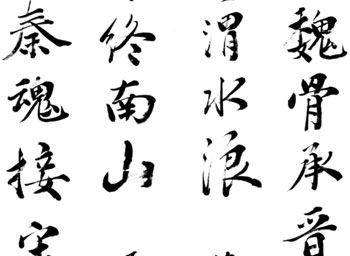 魏骨承晋
渭水浪
终南山
秦魂接